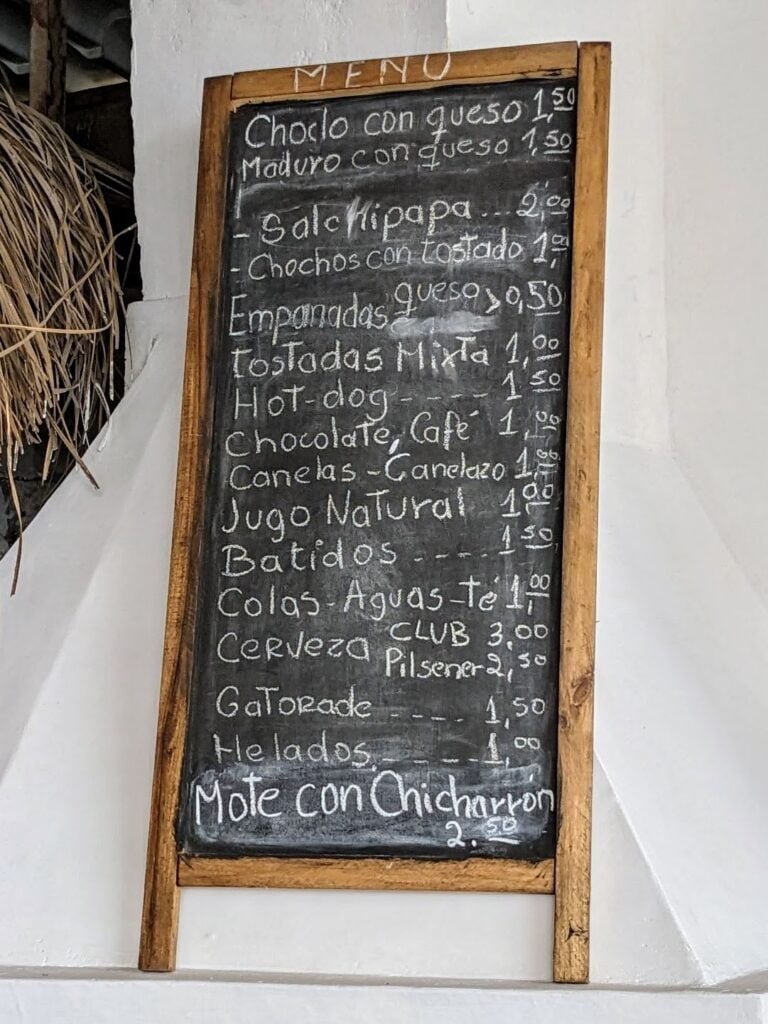 MENU
Choclo con queso 1,50
Maduro con queso 1,50
- Salchipapa... 2,00
- Chochos con tostado 1,00
Empanadas queso > 0,50
tostadas Mixta 1,00
Hot-dog ---- 1,50
Chocolate, Café 1,00
Canelas - Canelazo 1,00
Jugo Natural 1,00
Batidos ---- 1,50
Colas-Aguas-té 1,00
Cerveza CLUB 3,00
Pilsener 2,50
Gatorade ---- 1,50
Helados. ---- 1,00
Mote con Chicharrón
2.50